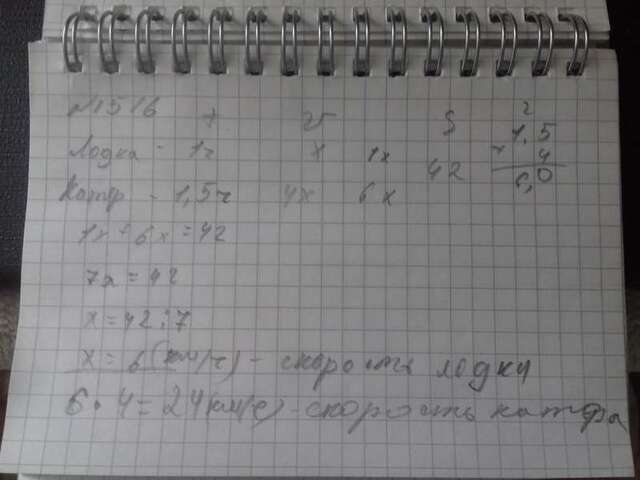 №1516 t v S
Лодка - 1ч x 1x 42
Катер - 1,5ч 4x 6x
2
1,5
× 4
6,0
1x + 6x = 42
7x = 42
x = 42 : 7
x = 6 (км/ч) - скорость лодки
6 · 4 = 24 км/ч) - скорость катера